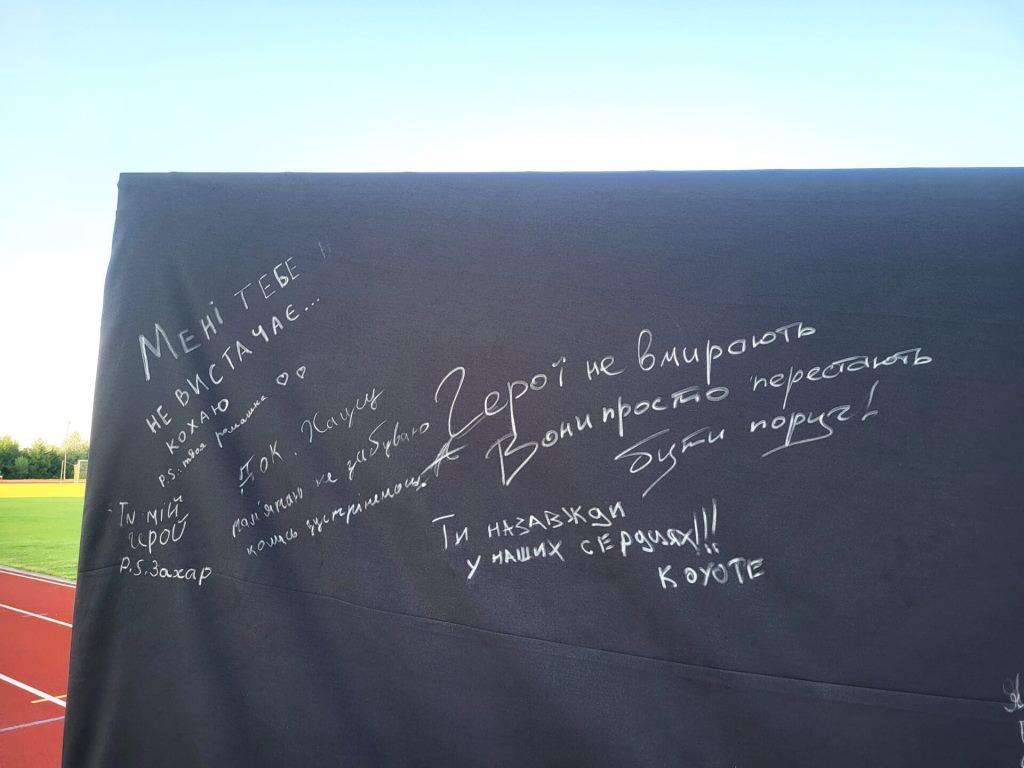 Мені тебе
не вистачає...
кохаю
P.S: твоя ромашка
Ти мій
герой
P.S. Захар
Док.
пам'ятаю не забуваю
колись зустрінемось
Герої не вмирають
Вони просто перестають
бути поруч!
Ти назавжди
у наших сердцях!!!
КОУОТЕ